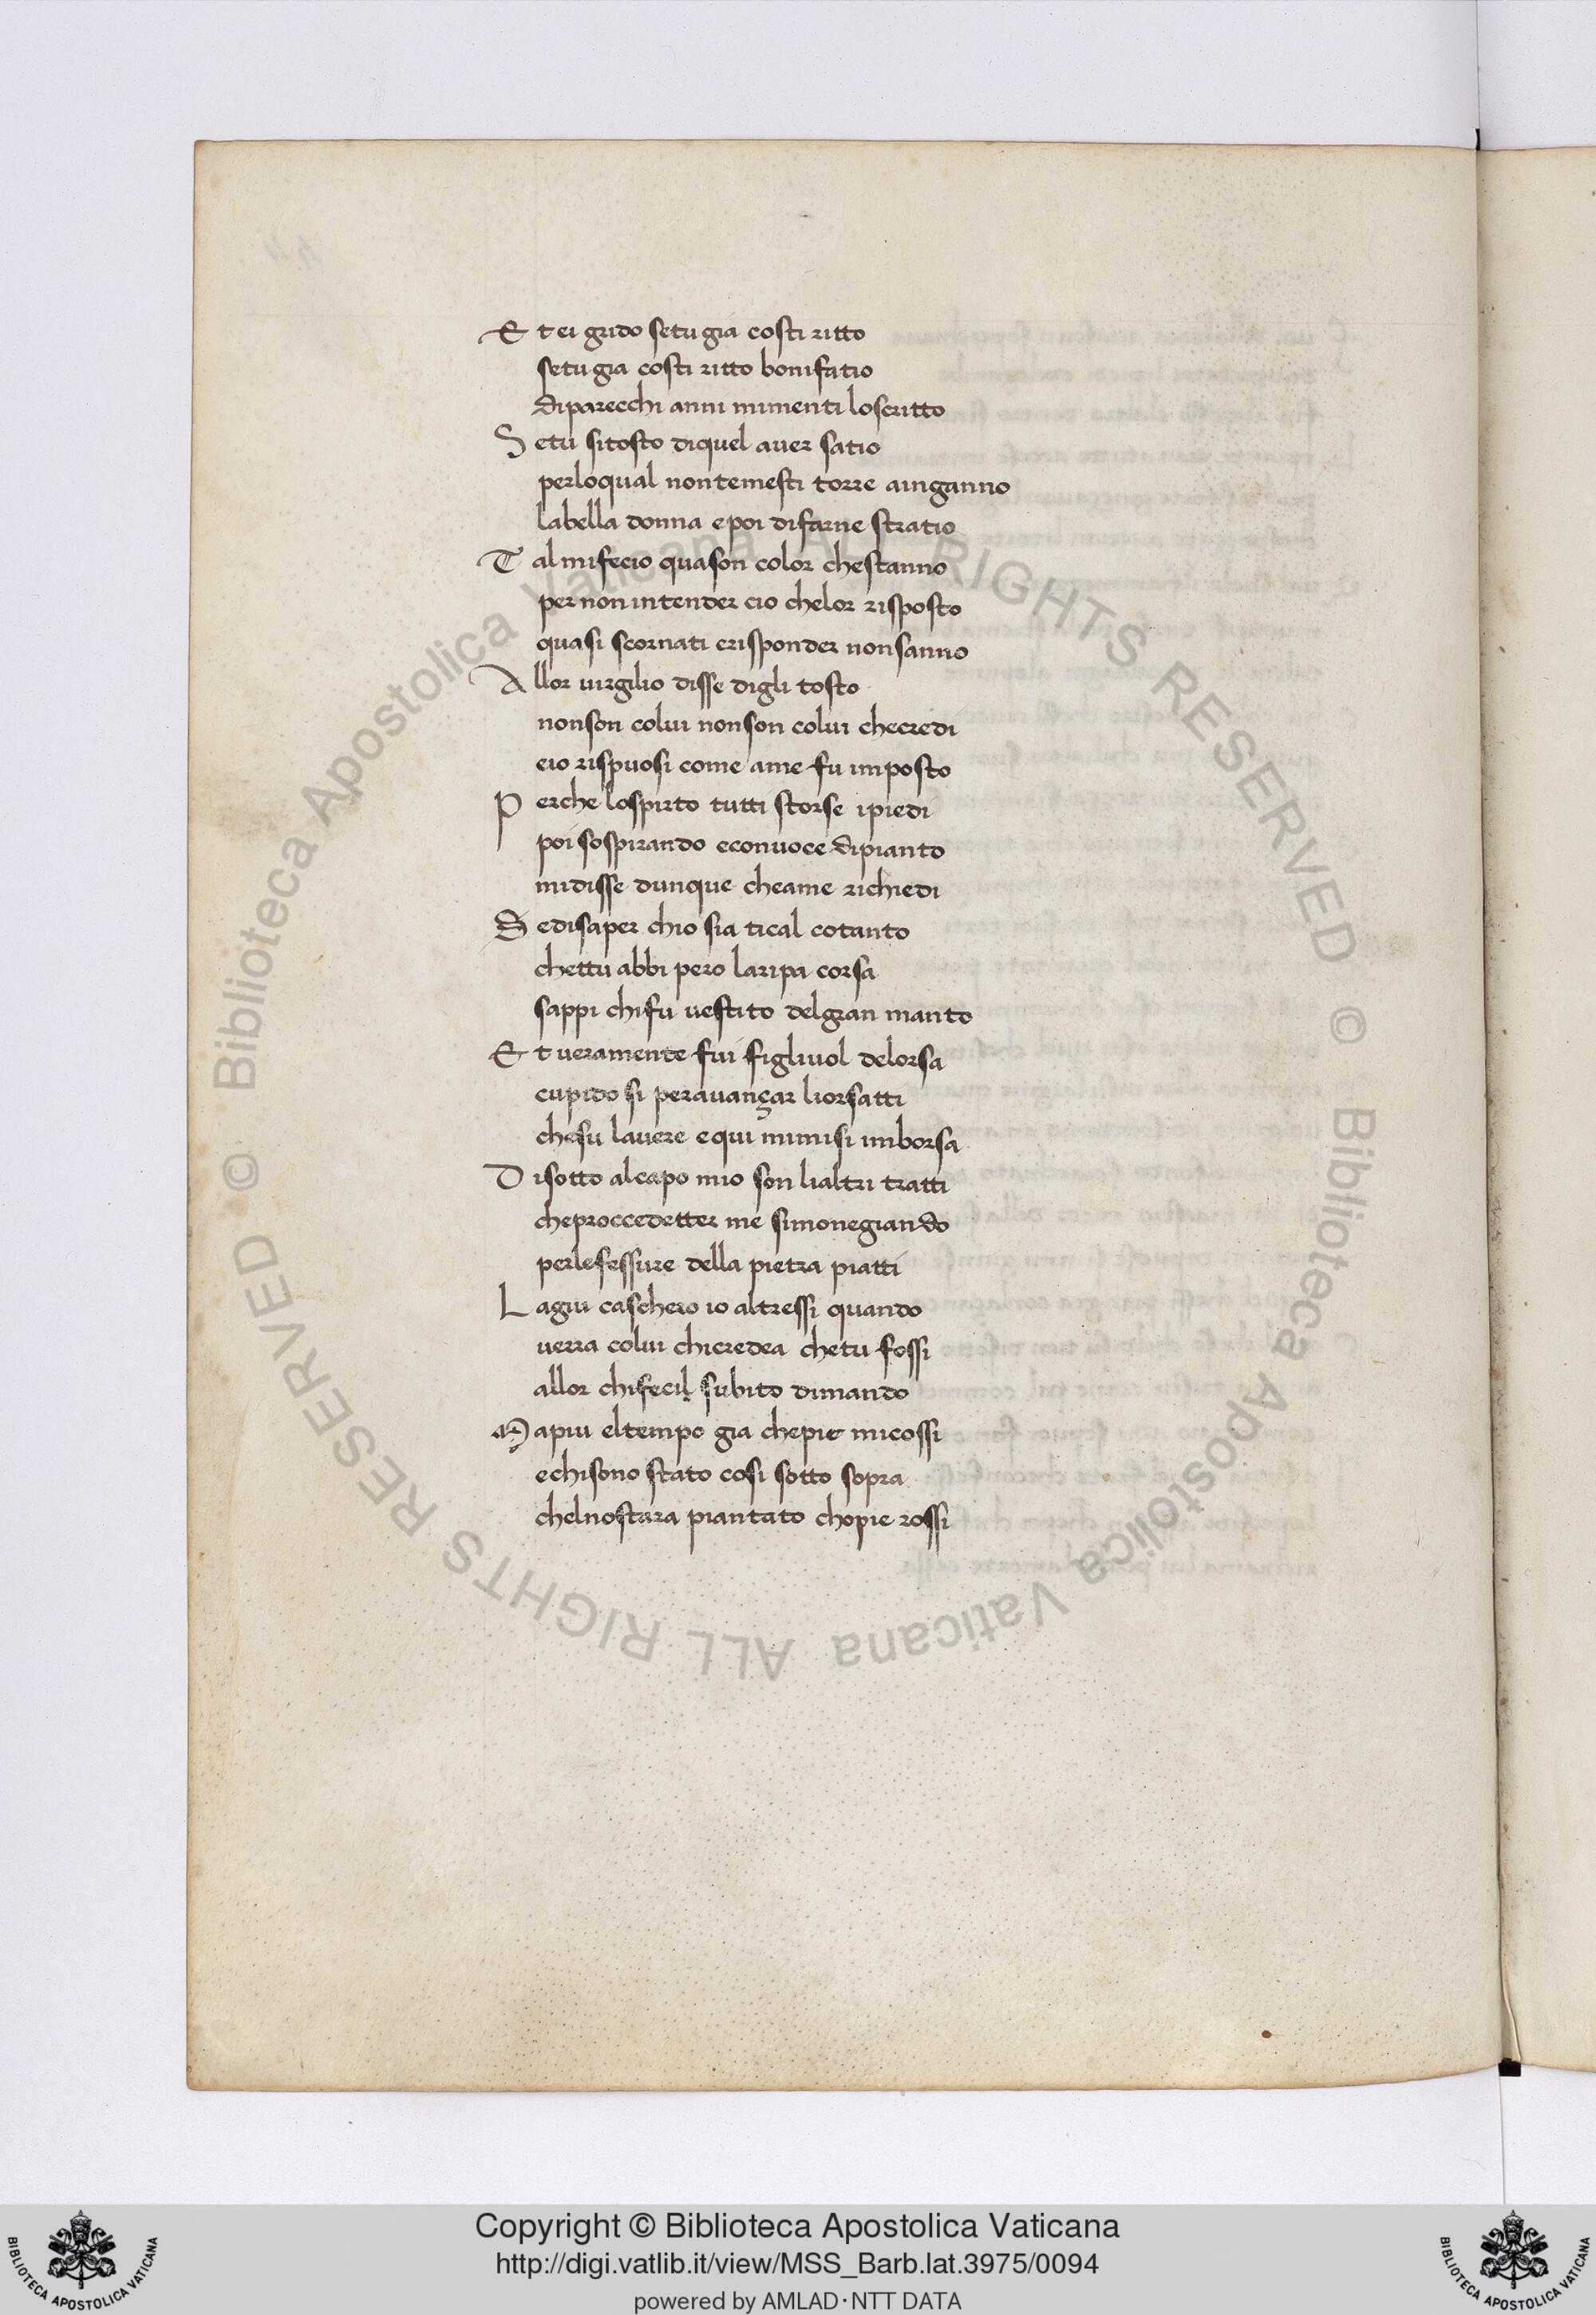 E t ei grido setu gia costi ritto
setu gia costi ritto bonifatio
diparecchi anni mimenti loscritto
S etu sitosto diquel auer satio
perloqual nontemesti torre ainganno
labella donna epoi difarne stratio
T almifecio quason color chestanno
per nonintender cio chelor risposto
quasi scornati erisponder nonsanno
A llor uirgilio disse digli tosto
nonson colui nonson colui checredi
eio rispuosi come ame fu imposto
P erche lospirto tutti storse ipiedi
poi sospirando econuoce dipianto
midisse dunque cheame richiedi
S edisaper chio sia tical cotanto
chettu abbi pero laripa corsa
sappi chifu uestito delgran manto
E t ueramente fui figliuol delorsa
cupido si perauançar liorsatti
chesu lauere equi mimisi imborsa
D isotto alcapo mio son lialtri tratti
cheproccedetter me simonegiando
perlefessure della pietra piatti
L agiu caschero io altressi quando
uerra colui chicredea chetu fossi
allor chifecil subito dimando
M apiu eltempo gia chepie micossi
echisono stato cosi sotto sopra
chelnostara piantato chopie rossi
© Biblioteca Apostolica Vaticana ALL RIGHTS RESERVED
© Biblioteca Apostolica Vaticana ALL RIGHTS RESERVED
Copyright © Biblioteca Apostolica Vaticana
http://digi.vatlib.it/view/MSS_Barb.lat.3975/0094
powered by AMLAD·NTT DATA
BIBLIOTECA APOSTOLICA VATICANA
BIBLIOTECA APOSTOLICA VATICANA